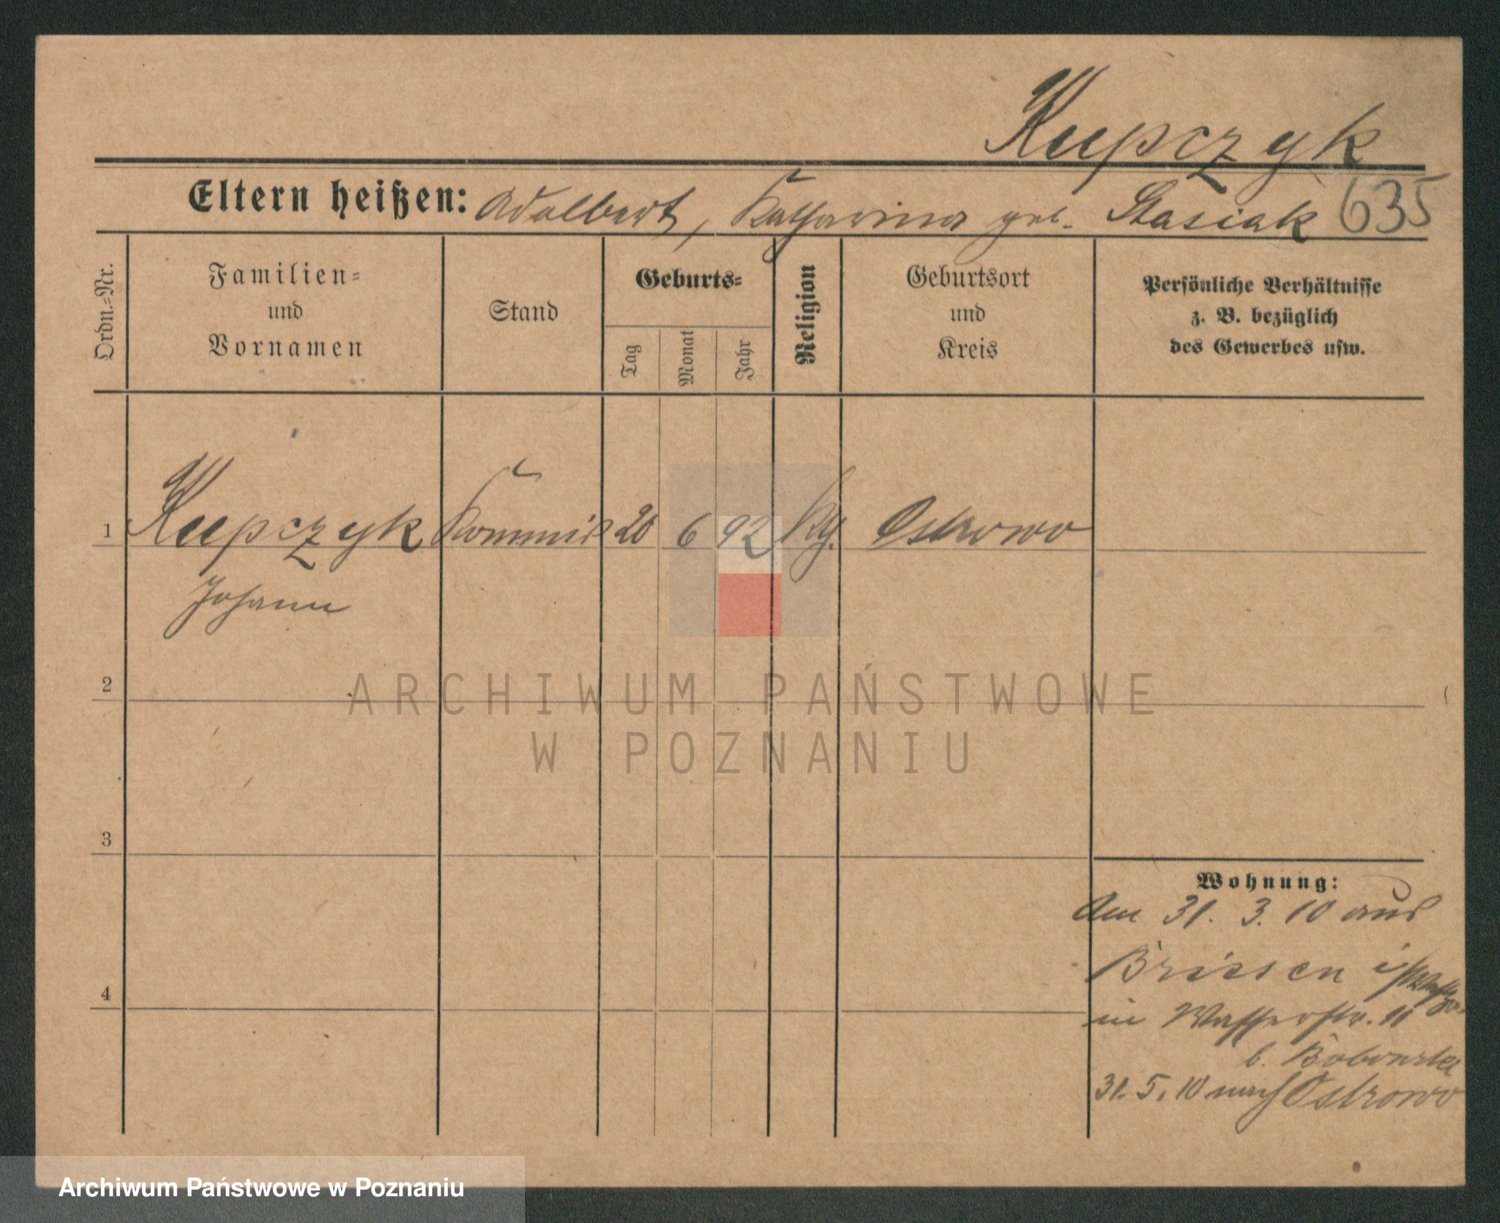 Kupczyk
Eltern heißen: Adalbert, Katharina geb. Stasiak 635
Ordn.-Nr.
Familien-
und
Vornamen
Stand
Geburts-
Tag
Monat
Jahr
Religion
Geburtsort
und
Kreis
Persönliche Verhältnisse
z. B. bezüglich
des Gewerbes usw.
1 Kupczyk Kommis 20 6 92 kg. Ostrowo
Johann
2
ARCHIWUM PAŃSTWOWE
W POZNANIU
3
Wohnung:
Am 31. 3. 10 aus
Brissen
4
in Wasserstr. 11
b. Bobowska
31. 5. 10 nach Ostrowo
Archiwum Państwowe w Poznaniu